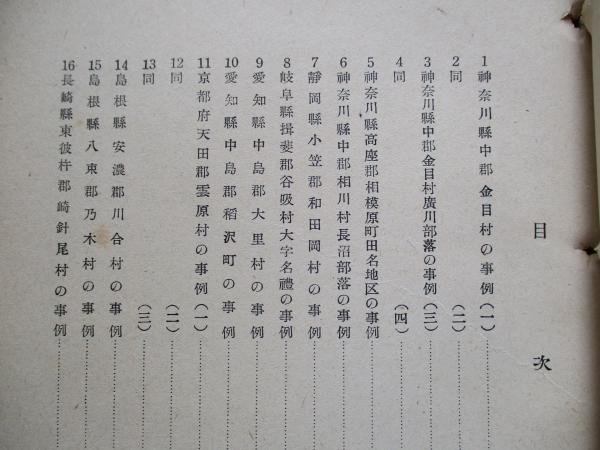 目次
1 神奈川縣中郡金目村の事例(一)
2 同(二)
3 神奈川縣中郡金目村廣川部落の事例(三)
4 同(四)
5 神奈川縣高座郡相模原町田名地区の事例
6 神奈川縣中郡相川村長沼部落の事例
7 靜岡縣小笠郡和田岡村の事例
8 岐阜縣揖斐郡谷吸村大字名禮の事例
9 愛知縣中島郡大里村の事例
10 愛知縣中島郡稻沢町の事例
11 京都府天田郡雲原村の事例(一)
12 同(二)
13 同(三)
14 島根縣安濃郡川合村の事例
15 島根縣八束郡乃木村の事例
16 長崎縣東彼杵郡崎針尾村の事例